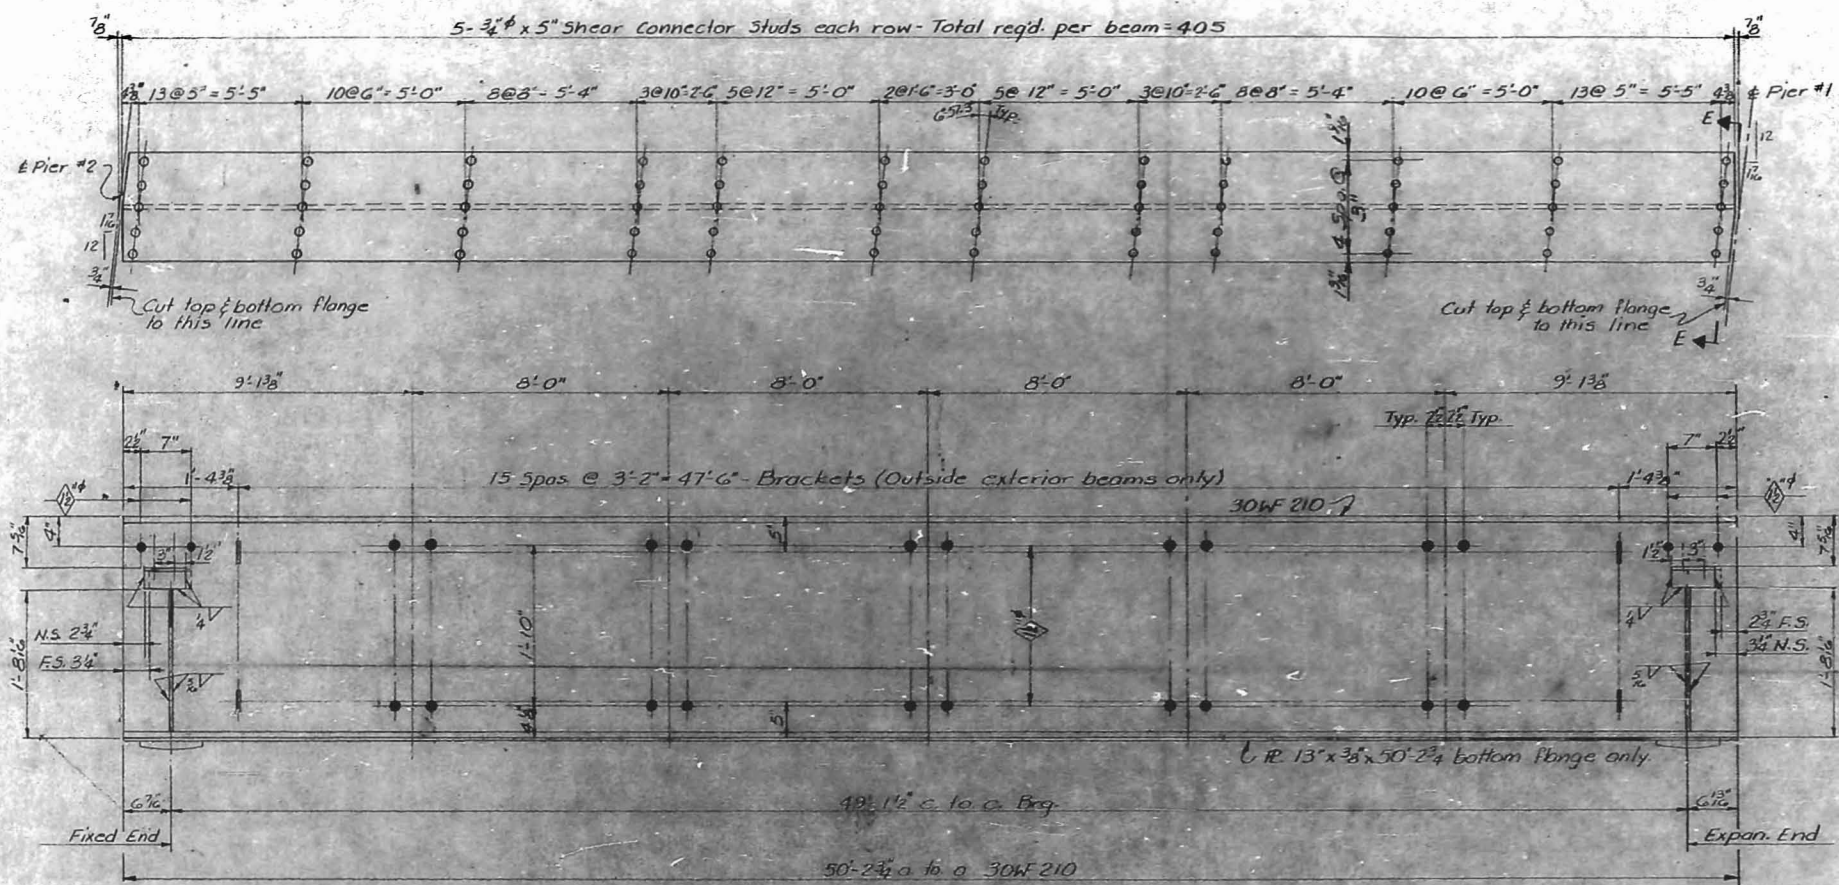 7/8"
5-3/4"φ x 5" Shear Connector Studs each row - Total req'd. per beam = 405
7/8"
4 3/8" 13@5" = 5'-5" 10@6" = 5'-0" 8@8" = 5'-4" 3@10"=2'-6" 5@12" = 5'-0" 2@1'-6"=3'-0" 5@12" = 5'-0" 3@10"=2'-6" 8@8" = 5'-4" 10@6" = 5'-0" 13@5" = 5'-5" 4 3/8"
℄ Pier #1
Typ.
E
12
1 7/16
℄ Pier #2
1 9/16"
4 Spa. @ 3"
1 9/16"
1 7/16
12
3/4"
3/4"
Cut top & bottom flange
to this line
Cut top & bottom flange
to this line
E
9'-1 3/8" 8'-0" 8'-0" 8'-0" 8'-0" 9'-1 3/8"
Typ. 7 1/2" 7 1/2" Typ.
2 1/2" 7"
7" 2 1/2"
1'-4 3/8"
15 Spas. @ 3'-2" = 47'-6" - Brackets (Outside exterior beams only)
1'-4 3/8"
1 1/2"φ
30WF 210
7 5/16" 4"
5"
4" 7 5/16"
3" 1 1/2"
1 1/2" 3"
1/4
1/4
N.S. 2 3/4"
F.S. 3 1/4"
2 3/4" F.S.
3 1/4" N.S.
1'-10"
1'-8 1/16"
1'-8 1/16"
5/16
5/16
4 1/8"
5"
PL 13" x 3/8" x 50'-2 3/4 bottom flange only.
6 7/16"
49'-1 1/2" c. to c. Brg.
6 13/16"
Fixed End
Expan. End
50'-2 3/4" o. to o. 30WF 210